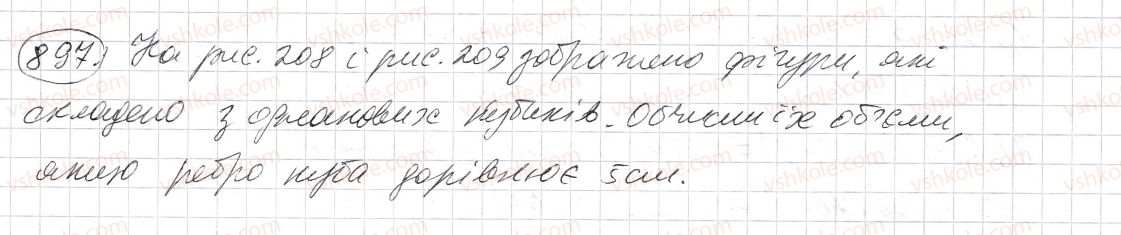 897. На рис. 208 і рис. 209 зображено фігури, які
складено з однакових кубиків. Обчисли їх об'єми,
якщо ребро куба дорівнює 5см.